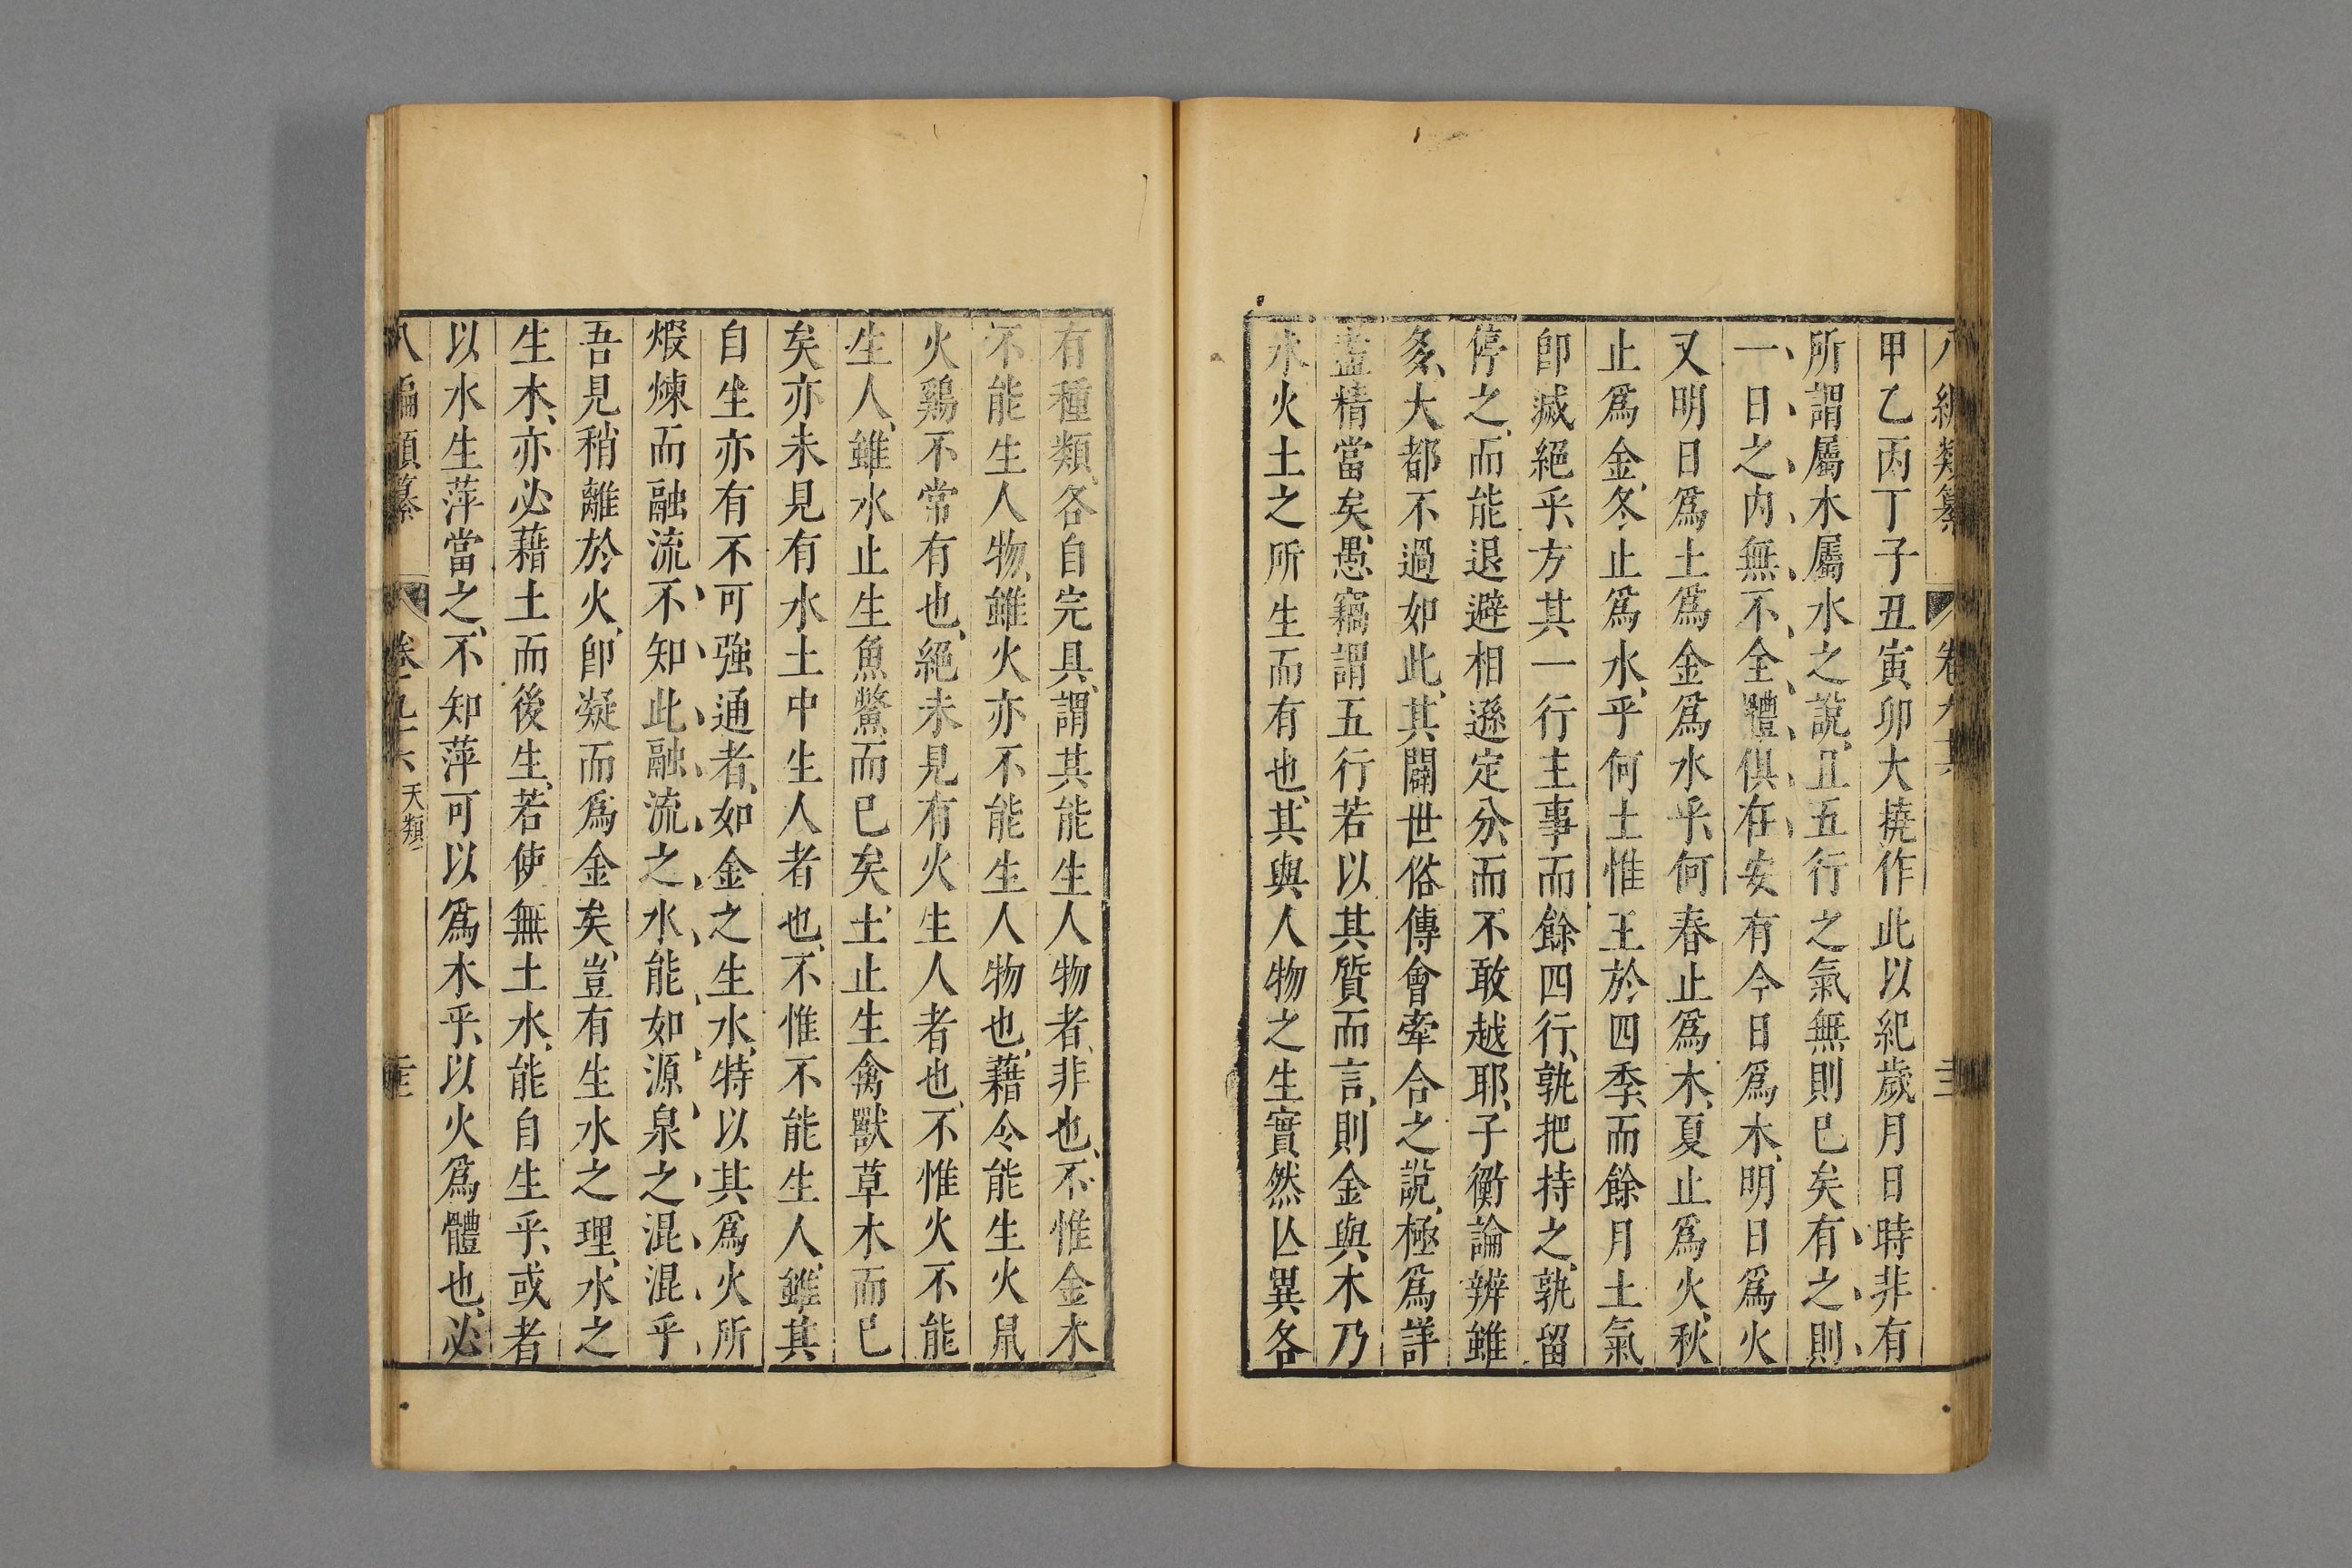 八編類纂 卷九十六
甲乙丙丁子丑寅卯大撓作此以紀歲月日時非有
所謂屬木屬水之說且五行之氣無則已矣有之則
一日之內無不全體俱在安有今日爲木明日爲火
又明日爲土爲金爲水乎何春止爲木夏止爲火秋
止爲金冬止爲水乎何土惟王於四季而餘月土氣
卽滅絕乎方其一行主事而餘四行孰把持之孰留
停之而能退避相遜定分而不敢越耶子衡論辨雖
多大都不過如此其闢世俗傳會牽合之說極爲詳
盡精當矣愚竊謂五行若以其質而言則金與木乃
水火土之所生而有也其與人物之生實然以異各
有種類各自完具謂其能生人物者非也不惟金木
不能生人物雖火亦不能生人物也藉令能生火鼠
火鷄不常有也絕未見有火生人者也不惟火不能
生人雖水止生魚鱉而已矣土止生禽獸草木而已
矣亦未見有水土中生人者也不惟不能生人雖其
自生亦有不可強通者如金之生水特以其爲火所
煆煉而融流不知此融流之水能如源泉之混混乎
吾見稍離於火卽凝而爲金矣豈有生水之理水之
生木亦必藉土而後生若使無土水能自生乎或者
以水生萍當之不知萍可以爲木乎以火爲體也必
八編類纂 卷九十六 天類